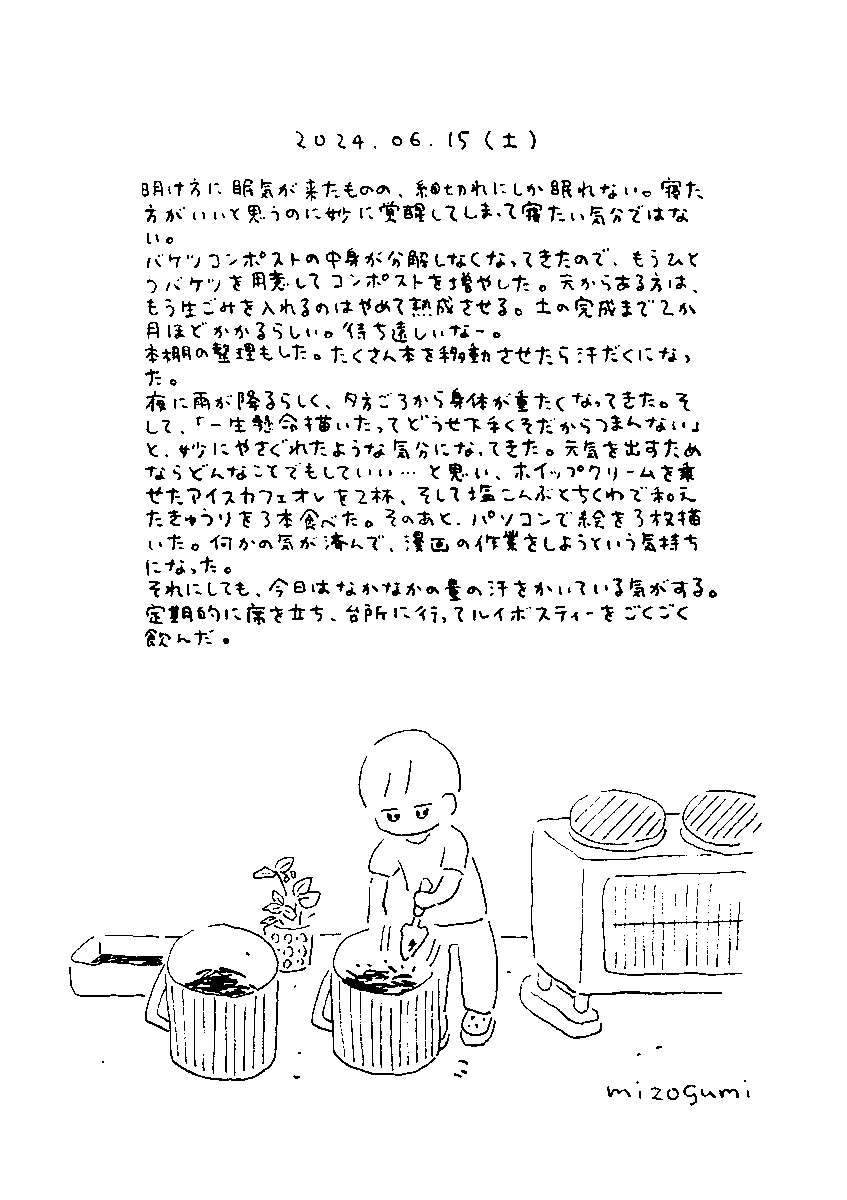 2024.06.15(土)
明け方に眠気が来たものの、細切れにしか眠れない。寝た
方がいいと思うのに妙に覚醒してしまって寝たい気分ではな
い。
バケツコンポストの中身が分解しなくなってきたので、もうひと
つバケツを用意してコンポストを増やした。元からある方は、
もう生ごみを入れるのはやめて熟成させる。土の完成まで2か
月ほどかかるらしい。待ち遠しいなー。
本棚の整理もした。たくさん本を移動させたら汗だくになっ
た。
夜に雨が降るらしく、夕方ごろから身体が重たくなってきた。そ
して、「一生懸命描いたってどうせ下手くそだからつまんない」
と、妙にやさぐれたような気分になってきた。元気を出すため
ならどんなことでもしていい…と思い、ホイップクリームを乗
せたアイスカフェオレを2杯、そして塩こんぶとちくわで和え
たきゅうりを3本食べた。そのあと、パソコンで絵を3枚描
いた。何かの気が済んで、漫画の作業をしようという気持ち
になった。
それにしても、今日はなかなかの量の汗をかいている気がする。
定期的に席を立ち、台所に行ってルイボスティーをごくごく
飲んだ。
mizogumi